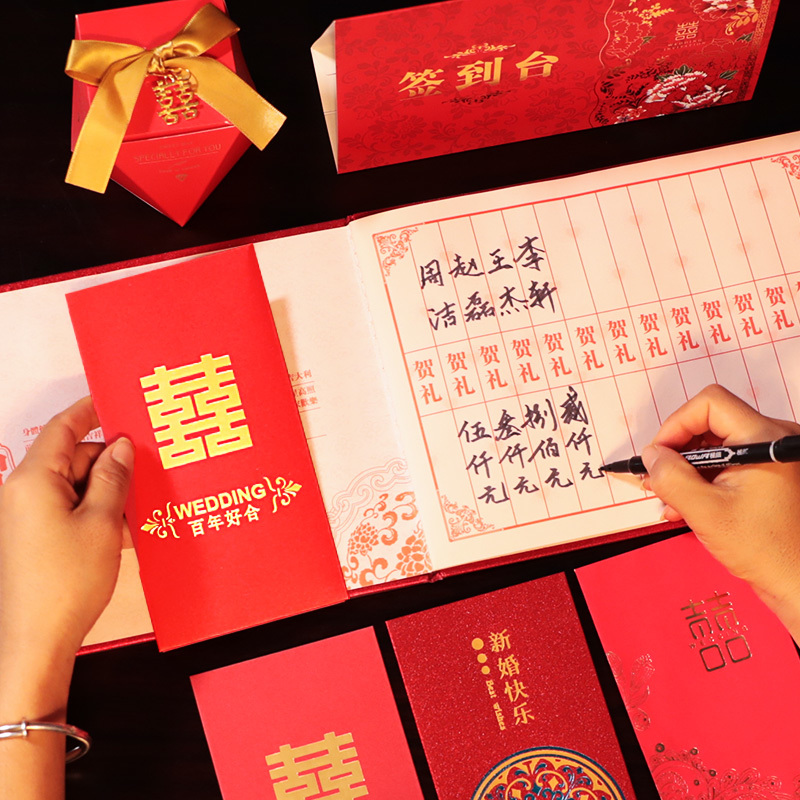 签到台
囍
囍
SPECIALLY FOR YOU
囍
WEDDING
百年好合
贺礼
贺礼
贺礼
贺礼
贺礼
贺礼
贺礼
贺礼
李轩 贺礼 贰仟元
王杰 贺礼 捌佰元
赵磊 贺礼 叁仟元
周洁 贺礼 伍仟元
囍
新婚快乐
Best Wishes
囍